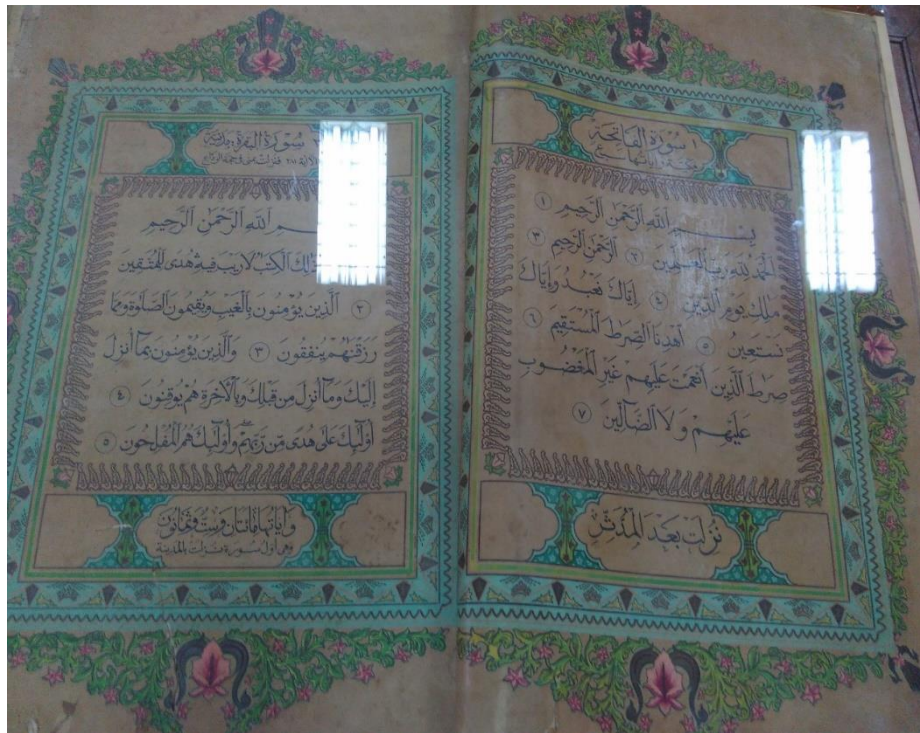 ١ سُورَةُ الفَاتِحَة
مكية وآياتها سبع
بِسْمِ ٱللَّهِ ٱلرَّحْمَٰنِ ٱلرَّحِيمِ ١
ٱلْحَمْدُ لِلَّهِ رَبِّ ٱلْعَٰلَمِينَ ٢ ٱلرَّحْمَٰنِ ٱلرَّحِيمِ ٣
مَٰلِكِ يَوْمِ ٱلدِّينِ ٤ إِيَّاكَ نَعْبُدُ وَإِيَّاكَ
نَسْتَعِينُ ٥ ٱهْدِنَا ٱلصِّرَٰطَ ٱلْمُسْتَقِيمَ ٦
صِرَٰطَ ٱلَّذِينَ أَنْعَمْتَ عَلَيْهِمْ غَيْرِ ٱلْمَغْضُوبِ
عَلَيْهِمْ وَلَا ٱلضَّآلِّينَ ٧
نزلت بعد المدثر
سُورَةُ البَقَرَةِ مدنية
فنزلت بمنى في حجة الوداع
ٱللَّهِ ٱلرَّحْمَٰنِ ٱلرَّحِيمِ
ذَٰلِكَ ٱلْكِتَٰبُ لَا رَيْبَ فِيهِ هُدًى لِّلْمُتَّقِينَ
٢ ٱلَّذِينَ يُؤْمِنُونَ بِٱلْغَيْبِ وَيُقِيمُونَ ٱلصَّلَوٰةَ وَمِمَّا
رَزَقْنَٰهُمْ يُنفِقُونَ ٣ وَٱلَّذِينَ يُؤْمِنُونَ بِمَآ أُنزِلَ
إِلَيْكَ وَمَآ أُنزِلَ مِن قَبْلِكَ وَبِٱلْأَخِرَةِ هُمْ يُوقِنُونَ ٤
أُو۟لَٰٓئِكَ عَلَىٰ هُدًى مِّن رَّبِّهِمْ وَأُو۟لَٰٓئِكَ هُمُ ٱلْمُفْلِحُونَ ٥
وآياتها مائتان وست وثمانون
وهي أول سورة نزلت بالمدينة